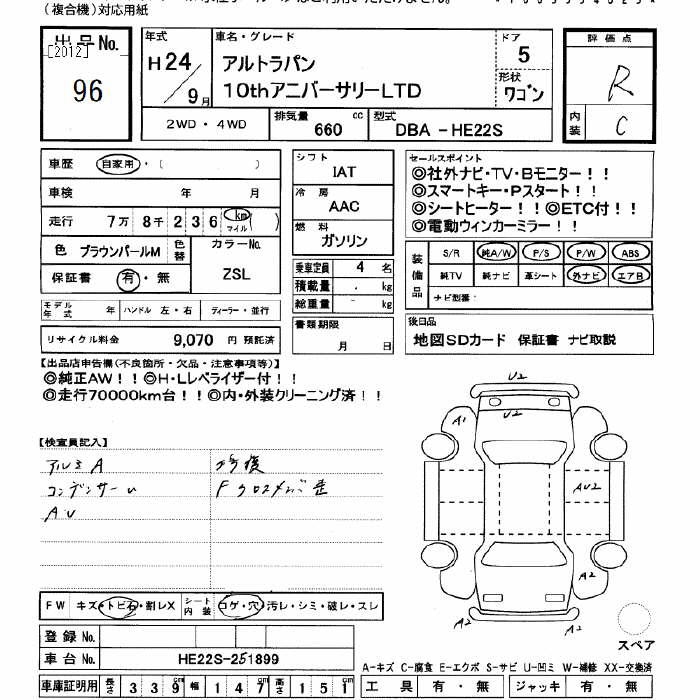 (複合機)対応用紙
出品No. 96
[2012]
年式 H24/9月
車名・グレード アルトラパン 10thアニバーサリーLTD
ドア 5
形状 ワゴン
評価点 R
内装 C
2WD・4WD
排気量 660 cc
型式 DBA-HE22S
車歴 自家用・( )
車検 年 月
走行 7万 8千 2 3 6 km マイル ( )
色 ブラウンパールM 色替
カラーNo. ZSL
保証書 有・無
モデル年式 年 ハンドル 左・右 ディーラー・並行
リサイクル料金 9,070 円 預託済
シフト IAT
冷房 AAC
燃料 ガソリン
乗車定員 4 名
積載量 . kg
総重量 kg
書類期限 月 日
セールスポイント
◎社外ナビ・TV・Bモニター!!
◎スマートキー・Pスタート!!
◎シートヒーター!!◎ETC付!!
◎電動ウィンカーミラー!!
装備品
S/R 純A/W P/S P/W ABS
純TV 純ナビ 革シート 外ナビ エアB
ナビ型番:
後日品
地図SDカード 保証書 ナビ取説
【出品店申告欄(不良箇所・欠品・注意事項等)】
◎純正AW!!◎H・Lレベライザー付!!
◎走行70000km台!!◎内・外装クリーニング済!!
【検査員記入】
アルミ A
コンデンサー U
AU
修復
F クロスメンバ 歪
U2
U2
A1
AU2
A2
A2
スペア
FW キズ・トビ石・割レX
シート内装 コゲ・穴・汚レ・シミ・破レ・スレ
登録No.
車台No. HE22S-251899
A-キズ C-腐食 E-エクボ S-サビ U-凹ミ W-補修 XX-交換済
車庫証明用 長さ 3 3 9 cm 幅 1 4 7 cm 高さ 1 5 1 cm
工具 有・無 ジャッキ 有・無